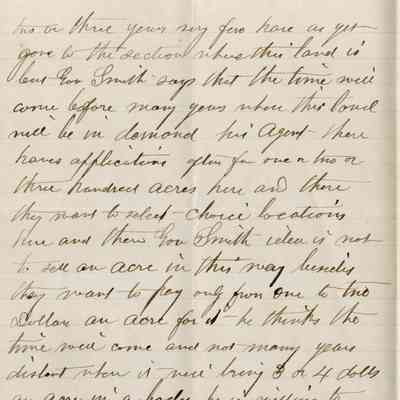 two or three years very few have as yet
gone to the section where this land is
but Gov Smith says that the time will
come before many years when this land
will be in demand his Agent there
haves applications often for one or two or
three hundred acres here and there
they want to select choice locations
here and there Gov Smith idea is not
to sell an acre in this way besides
they want to pay only from one to two
Dollars an acre for it he thinks the
time will come and not many years
distant when it will bring 3 or 4 dolls
an acre in a body he is willing to